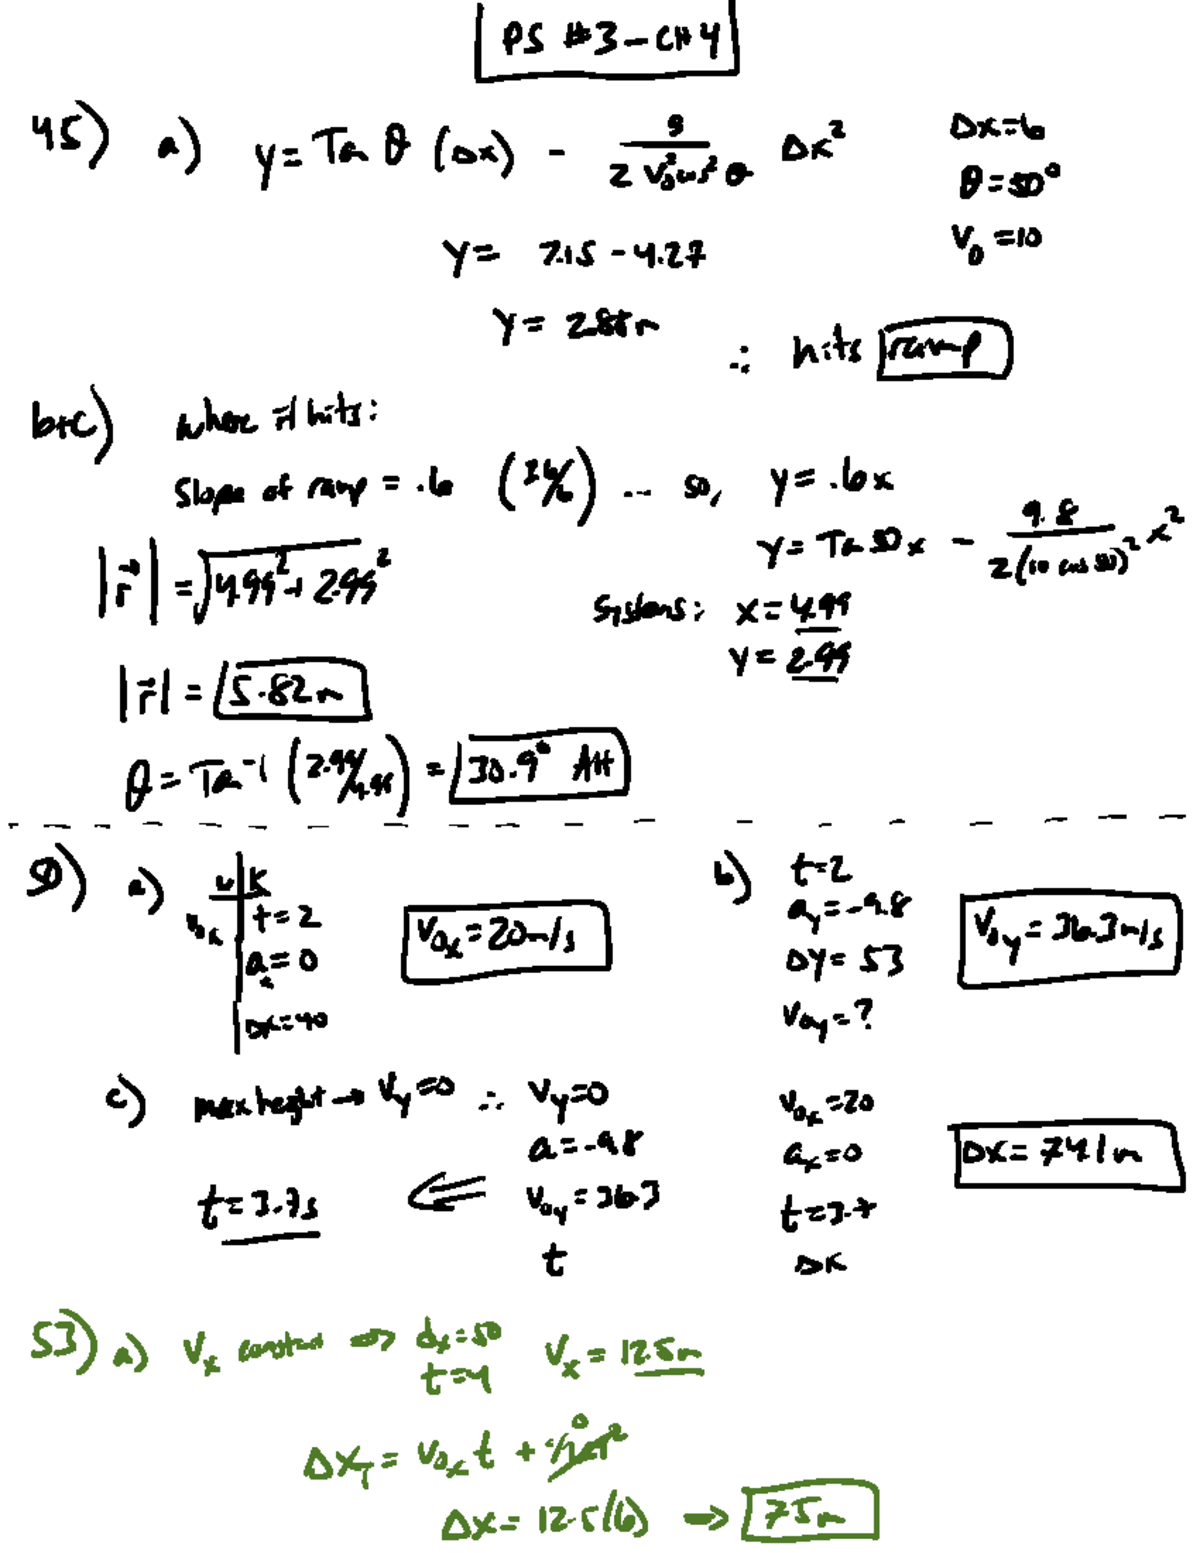 PS #3 - CH 4
45) a) y = Tan θ (Δx) - g / 2 V₀² cos² θ Δx²
Δx = 6
θ = 50°
V₀ = 10
y = 7.15 - 4.27
y = 2.88 m
∴ hits ramp
b+c) where it hits:
Slope of ramp = .6 (3.6/6) ... so, y = .6x
y = Tan 50 x - 9.8 / 2(10 cos 50)² x²
Systems: x = 4.99
y = 2.99
|r⃗| = √4.99² + 2.99²
|r⃗| = 5.82 m
θ = Tan⁻¹ (2.99/4.99) = 30.9° AH
50) a) u | K
V₀ₓ | t = 2
aₓ = 0
Δx = 40
V₀ₓ = 20 m/s
b) t = 2
a_y = -9.8
Δy = 53
V₀y = ?
V₀y = 36.3 m/s
c) max height → V_y = 0 ∴ V_y = 0
a = -9.8
V₀y = 36.3
t
t = 3.7s
⇐
V₀ₓ = 20
aₓ = 0
t = 3.7
Δx
Δx = 74.1 m
53) a) Vₓ constant ⇒ dₓ = 50
t = 4
Vₓ = 12.5 m
Δx_T = V₀ₓ t + ½at² 0
Δx = 12.5(6) ⇒ 75 m